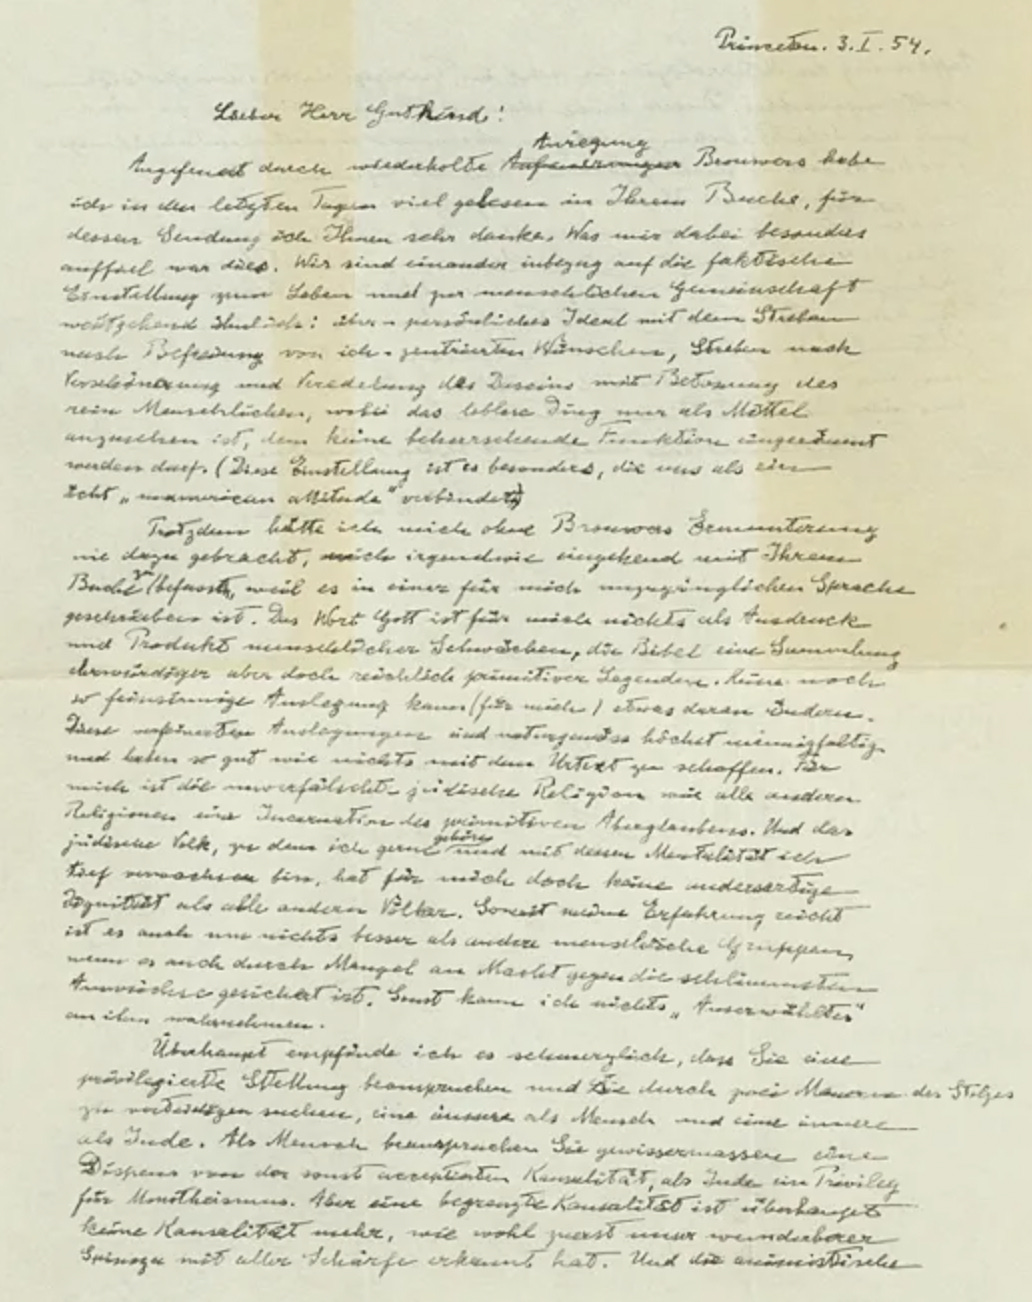 Princeton. 3. I. 54.
Lieber Herr Gutkind!
Anregung
Angefeuert durch wiederholte Brouwers habe
ich in den letzten Tagen viel gelesen in Ihrem Buche, für
dessen Sendung ich Ihnen sehr danke. Was mir dabei besonders
auffiel war dies. Wir sind einander inbezug auf die faktische
Einstellung zum Leben und zur menschlichen Gemeinschaft
weitgehend ähnlich: über-persönliches Ideal mit dem Streben
nach Befreiung von ich-zentrierten Wünschen, Streben nach
Verschönerung und Veredelung des Daseins mit Betonung des
rein Menschlichen, wobei das leblose Ding nur als Mittel
anzusehen ist, dem keine beherrschende Funktion eingeräumt
werden darf. (Diese Einstellung ist es besonders, die uns als ein
echt „unamerican attitude“ verbindet.)
Trotzdem hätte ich mich ohne Brouwers Ermunterung
nie dazu gebracht, mich irgendwie eingehend mit Ihrem
Buche zu befassen, weil es in einer für mich unzugänglichen Sprache
geschrieben ist. Das Wort Gott ist für mich nichts als Ausdruck
und Produkt menschlicher Schwächen, die Bibel eine Sammlung
ehrwürdiger aber doch reichlich primitiver Legenden. Keine noch
so feinsinnige Auslegung kann (für mich) etwas daran ändern.
Diese verfeinerten Auslegungen sind naturgemäss höchst mannigfaltig
und haben so gut wie nichts mit dem Urtext zu schaffen. Für
mich ist die unverfälschte jüdische Religion wie alle anderen
Religionen eine Incarnation des primitiven Aberglaubens. Und das
jüdische Volk, zu dem ich gerne gehöre und mit dessen Mentalität ich
tief verwachsen bin, hat für mich doch keine andersartige
Dignität als alle andern Völker. Soweit meine Erfahrung reicht
ist es auch um nichts besser als andere menschliche Gruppen,
wenn es auch durch Mangel an Macht gegen die schlimmsten
Auswüchse gesichert ist. Sonst kann ich nichts „Auserwähltes“
an ihm wahrnehmen.
Überhaupt empfinde ich es schmerzlich, dass Sie eine
privilegierte Stellung beanspruchen und Sie durch zwei Mauern des Stolzes
zu verteidigen suchen, eine äussere als Mensch und eine innere
als Jude. Als Mensch beanspruchen Sie gewissermassen einen
Dispens von der sonst acceptierten Kausalität, als Jude ein Privileg
für Monotheismus. Aber eine begrenzte Kausalität ist überhaupt
keine Kausalität mehr, wie wohl zuerst unser wunderbarer
Spinoza mit aller Schärfe erkannt hat. Und die animistische